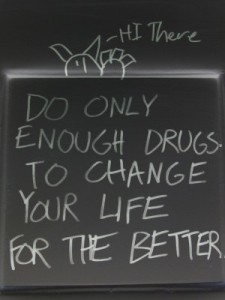 -HI There
DO ONLY
ENOUGH DRUGS.
TO CHANGE
YOUR LIFE
FOR THE BETTER.